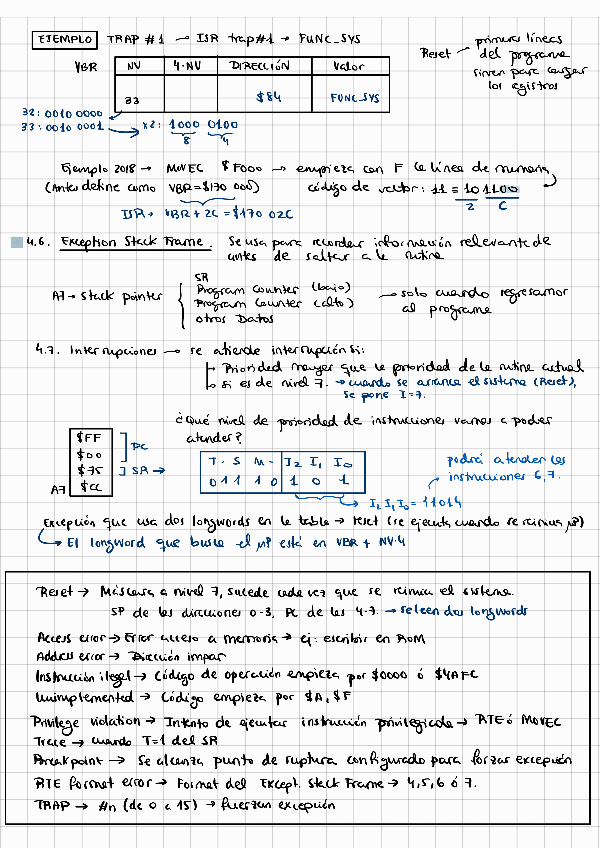 EJEMPLO TRAP #1 → ISR trap#1 → FUNC_SYS
Reset → primeras líneas
del programa
sirven para cargar
los registros
VBR NV 4·NV DIRECCIÓN Valor
33 $84 FUNC_SYS
32: 0010 0000
33: 0010 0001 → x2: 1000 0100
8 4
Ejemplo 2018 → MOVEC $F000 → empieza con F (e línea de numeria)
(Antes define como VBR=$170 000) código de vector: 11 = 10 1100
2 C
ISR → VBR + 2C = $170 02C
4.6. Exception Stack Frame. Se usa para recordar información relevante de
antes de saltar a la rutina
A7 → Stack pointer
SR
Program Counter (bajo)
Program Counter (alto)
otros Datos
→ solo cuando regresamos
al programa
4.7. Interrupciones → se atiende interrupción si:
↳ Prioridad mayor que la prioridad de la rutina actual
↳ si es de nivel 7. → cuando se arranca el sistema (Reset),
se pone I=7.
¿Qué nivel de prioridad de instrucciones vamos a poder
atender?
$FF
$00
] PC
$75
] SR →
A7 $CC
T · S M · I2 I1 I0
0 1 1 1 0 1 0 1
podrá atender las
instrucciones 6,7.
I2 I1 I0 = 11014
Excepción que usa dos longwords en la tabla → reset (se ejecuta cuando se reinicia μP)
↳ El longword que busca el μP está en VBR + NV·4
Reset → Máscara a nivel 7, sucede cada vez que se reinicia el sistema.
SP de las direcciones 0-3, PC de las 4-7. → se leen dos longwords
Access error → Error acceso a memoria → ej: escribir en ROM
Address error → Dirección impar
Instrucción ilegal → Código de operación empieza por $0000 ó $4AFC
Unimplemented → Código empieza por $A, $F
Privilege violation → Intento de ejecutar instrucción privilegiada → RTE ó MOVEC
Trace → cuando T=1 del SR
Breakpoint → Se alcanza punto de ruptura configurado para forzar excepción
RTE format error → Format del Except. Stack Frame → 4,5,6 ó 7.
TRAP → #n (de 0 a 15) → fuerzan excepción